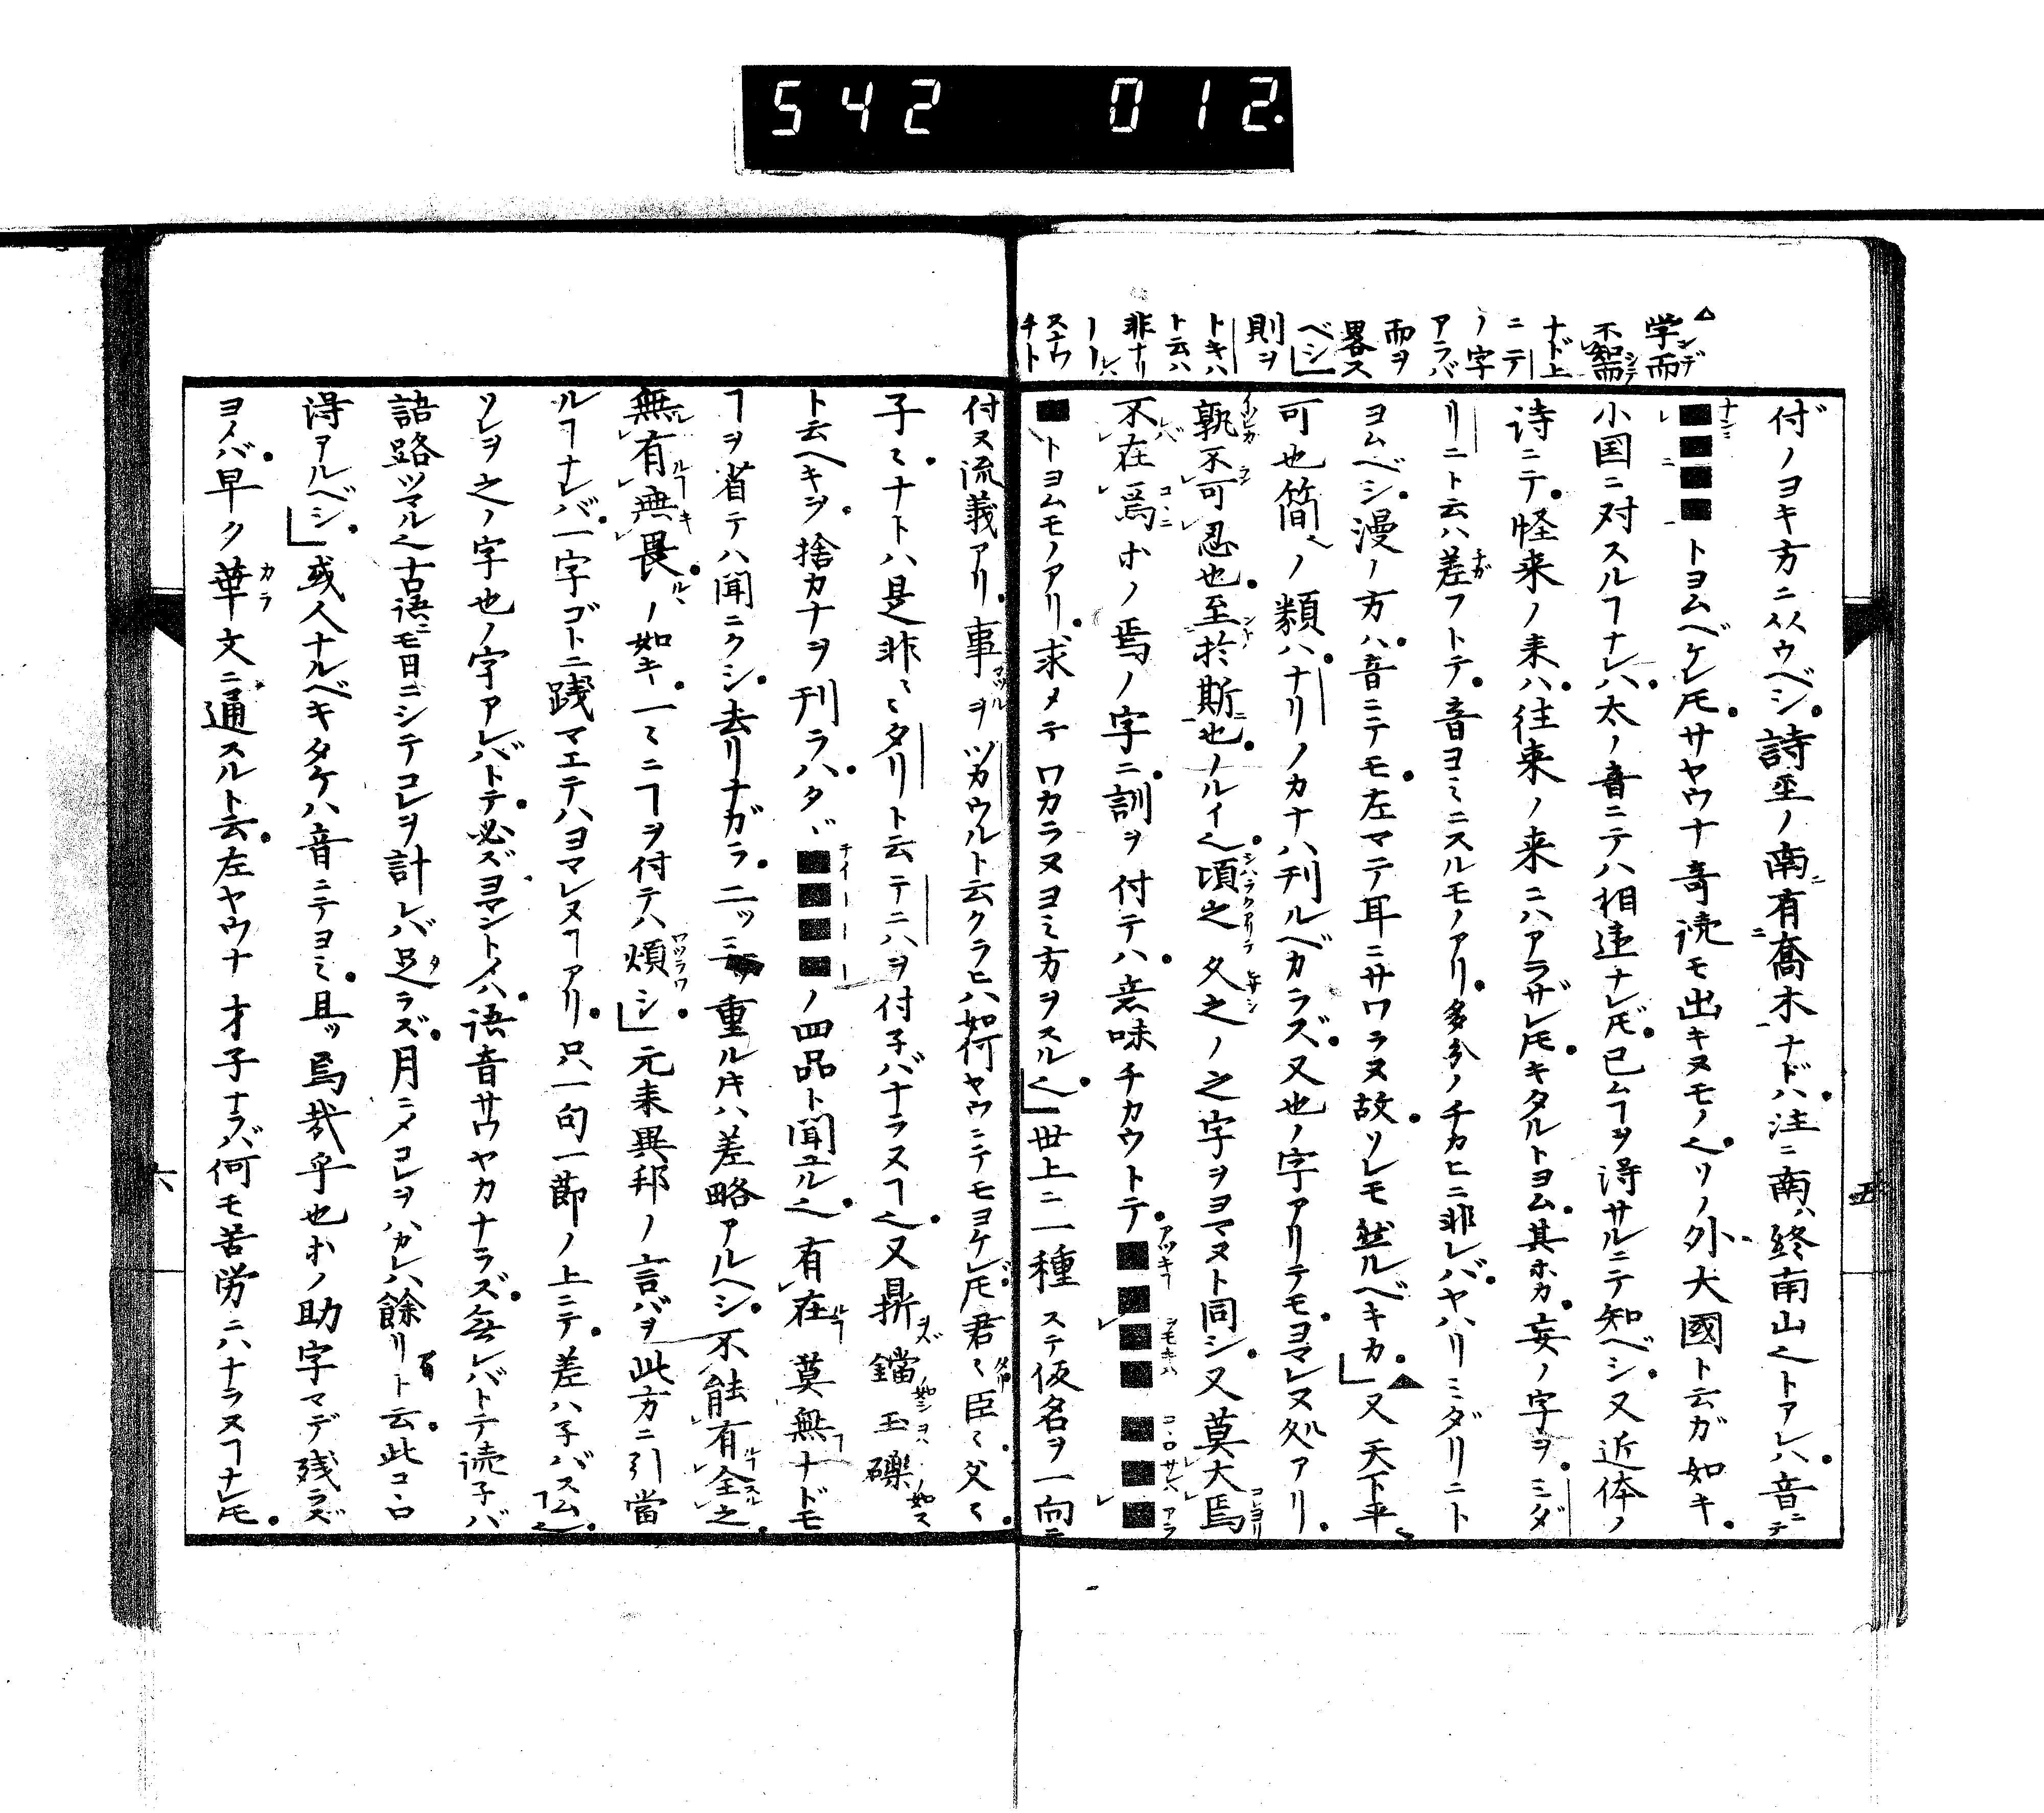 542 012.
△
学ンデ而
不レ知而シテ
ナド上
ニテ
ノ字
アラバ
而ヲ
畧ス
ベシ」
則ヲ
トキハ
ト云ハ
非ナリ
ーーレハ
スナワ
チト
付ノヨキ方ニ从ウベシ。詩巠ノ南ニ有喬木ナドハ。注ニ南ハ終南山也トアレハ。音ニテ
■■■■トヨムベケレ𪜈。サヤウナ奇読モ出キヌモノ也。リノ外。大國ト云ガ如キ。
小国ニ対スルヿナレハ。太ノ音ニテハ相違ナレ𪜈。已ムヿヲ得サルニテ知ベシ。又近体ノ
詩ニテ。怪来ノ来ハ。往来ノ来ニハアラザレ𪜈。キタルトヨム。其ホカ。妄ノ字ヲ。ミダ
リニト云ハ差フトテ。音ヨミニスルモノアリ。多分ノチカヒニ非レバ。ヤハリミダリニト
ヨムベシ。漫ノ方ハ。音ニテモ。左マテ耳ニサワラヌ故。ソレモ然ルベキカ。」又天下平
可也簡也ノ類ハ。ナリノカナハ刊ルベカラズ。又也ノ字アリテモ。ヨマレヌ処アリ。
孰不可忍也。至於斯也。ノルイ也。頃之久之ノ之字ヲヨマヌト同シ。又莫大焉
不在焉ホノ焉ノ字ニ。訓ヲ付テハ。意味チカウトテ。■■■■■■■
■トヨムモノアリ。求メテワカラヌヨミ方ヲスル也。」世上ニ一種ステ仮名ヲ一向ニ
付ヌ流義アリ。事ヲツカウルト云クラヒハ如何ヤウニテモヨケレ𪜈。君〻臣〻。父〻。
子〻。ナトハ是非〻タリト云テニハヲ付子バナラヌヿ也。又鼎鐺玉礫
ト云ヘキヲ。捨カナヲ刊ラハ。タヾ■■■■ノ四品ト聞ユル也。有在莫無ナドモ
ヿヲ省テハ聞ニクシ。去リナガラ。二ッ三ッ重ル片ハ差略アルヘシ。不能有全之。
無有無畏。ノ如キ。一〻ニヿヲ付テハ煩シ。」元来異邦ノ言バヲ此方ニ引當
ルヿナレバ。一字ゴトニ踐マエテハヨマレヌヿアリ。只一句一節ノ上ニテ。差ハ子バスム也。
ソレヲ之ノ字也ノ字アレバトテ。必ズヨマントイハ。語音サワヤカナラズ。無レバトテ読子バ
語路ツマル也。古語ニモ日ニシテコレヲ計レバ足ラズ。月ニメコレヲハカレハ餘リ有ト云。此コヽロ
得アルベシ。」或人ナルベキタケハ音ニテヨミ。且ッ焉哉乎也ホノ助字マデ残ラズ
ヨメバ。早ク華文ニ通スルト云。左ヤウナ才子ナラバ何モ苦労ニハナラヌヿナレ𪜈。
五
六